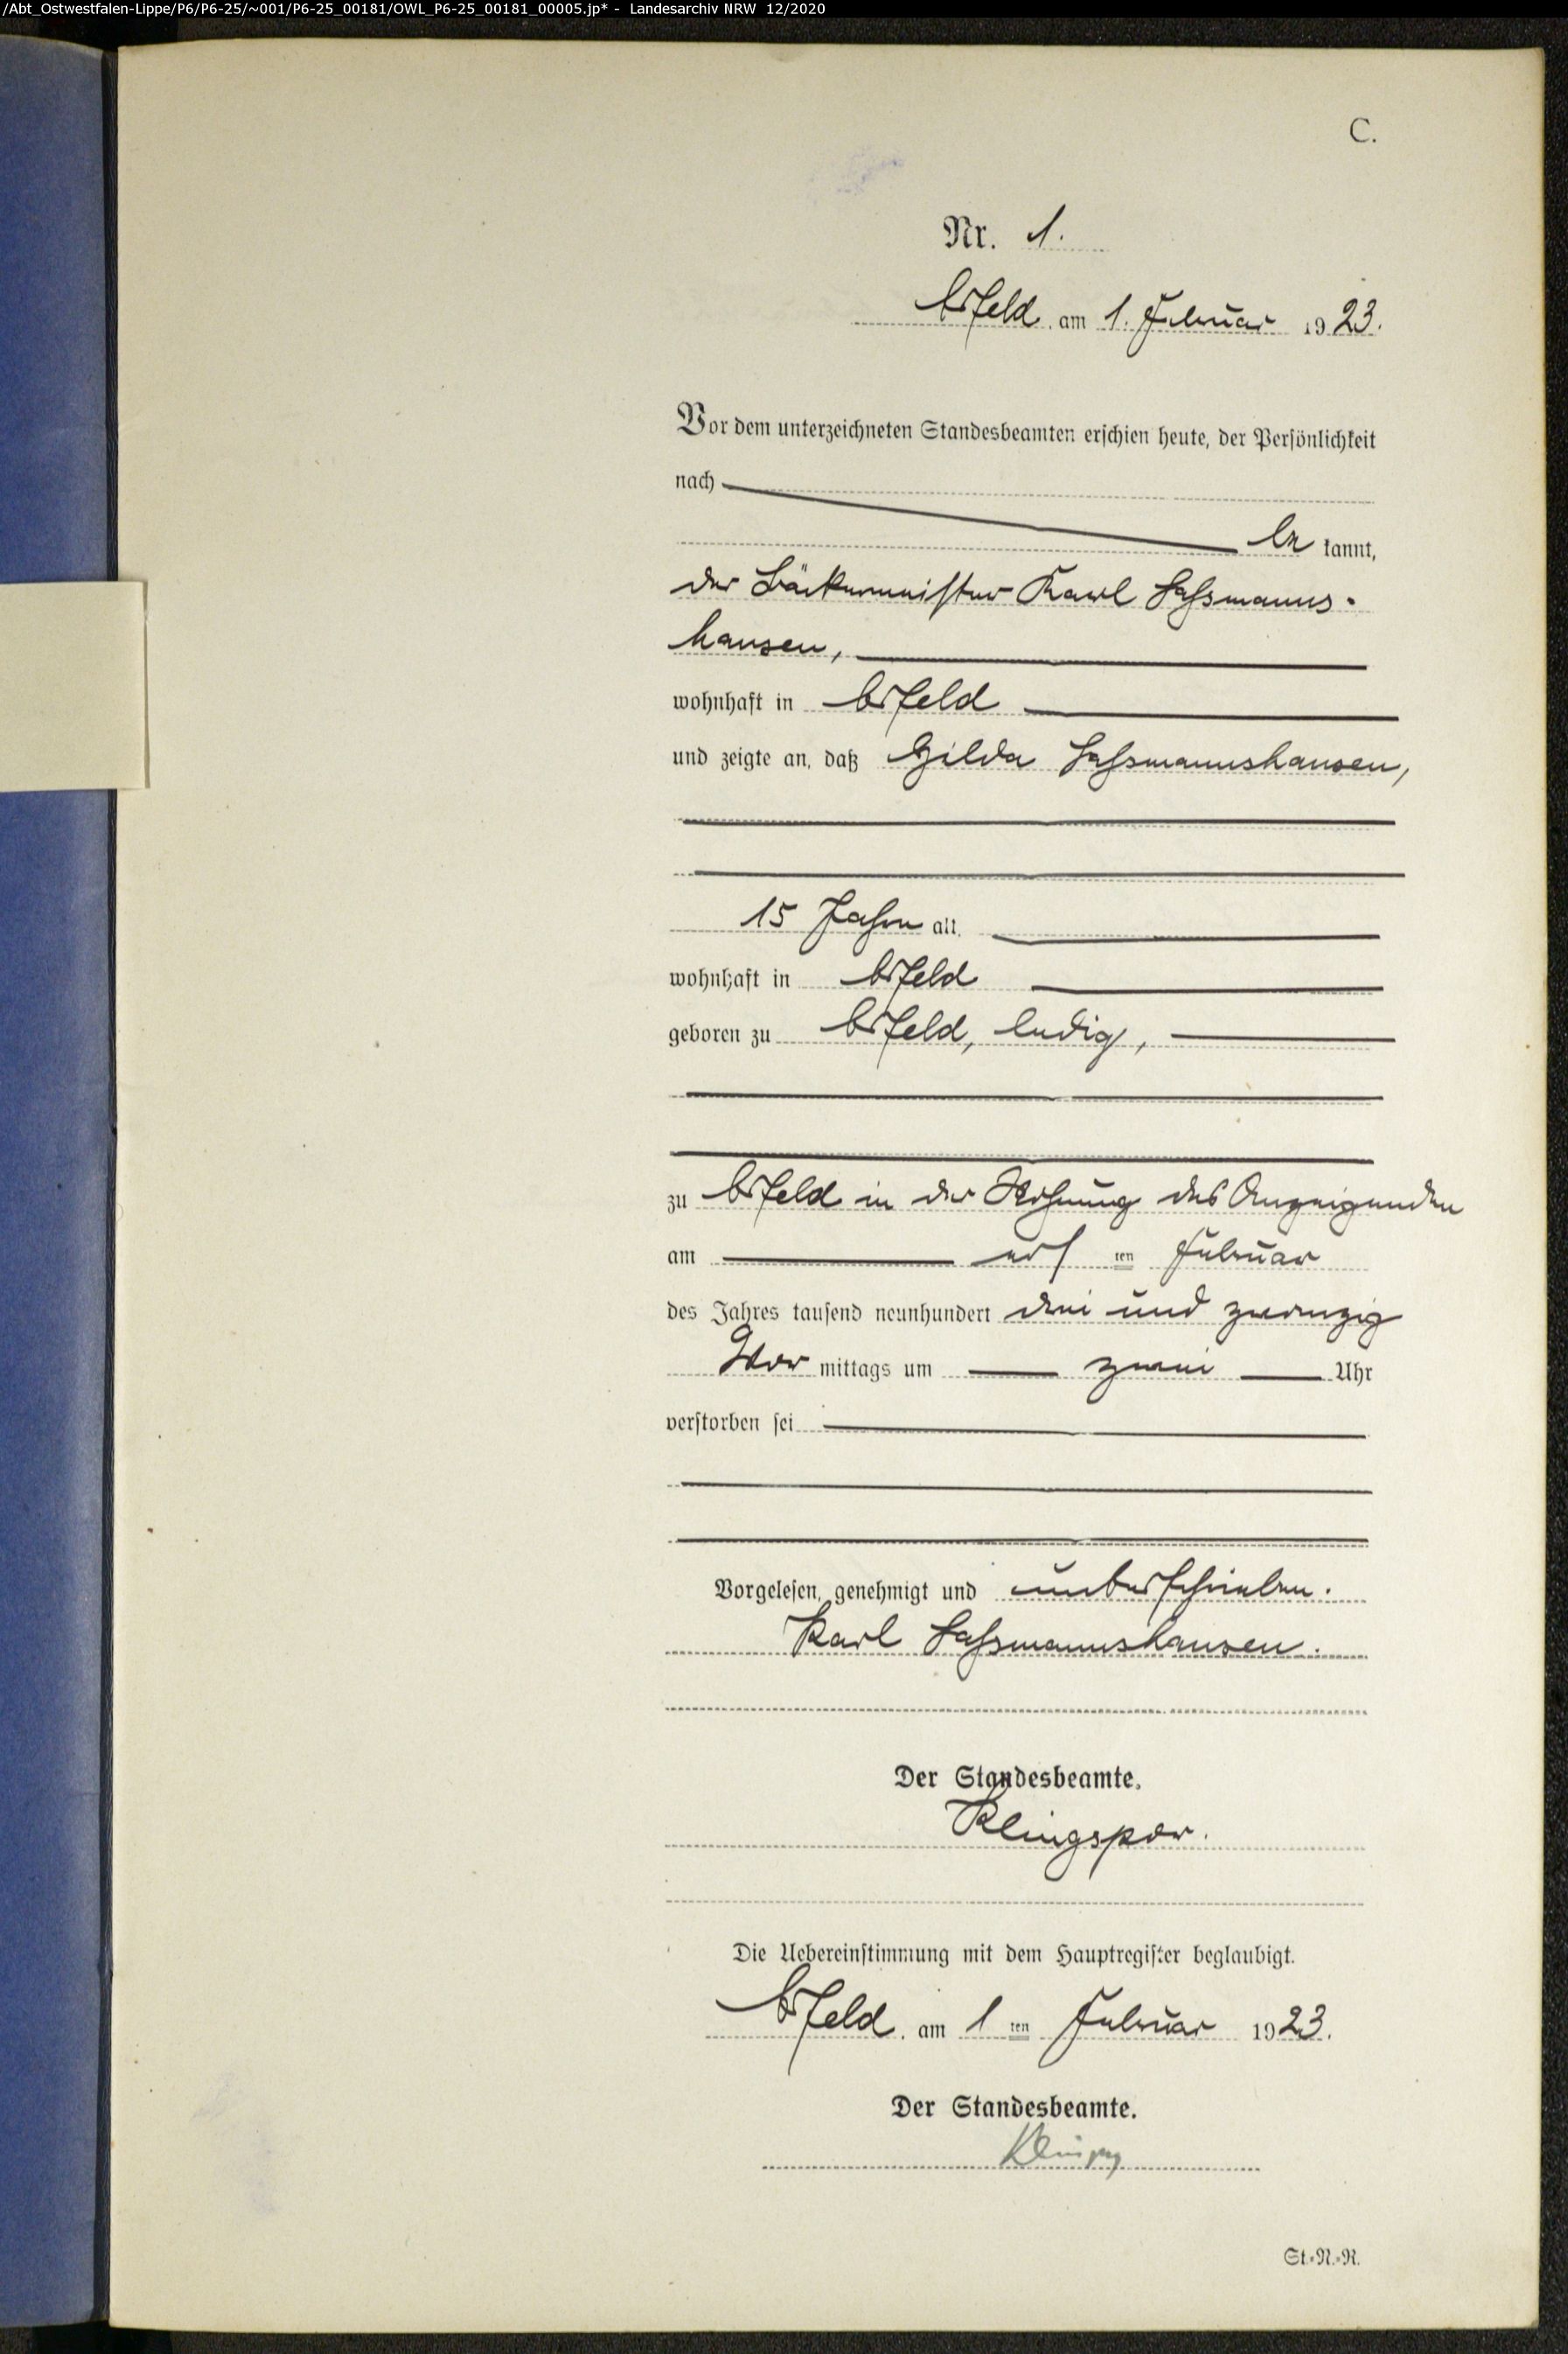 C.
Nr. 1.
Arfeld, am 1. Februar 1923.
Vor dem unterzeichneten Standesbeamten erschien heute, der Persönlichkeit
nach
be kannt,
der Bäckermeister Karl Saßmanns-
hausen,
wohnhaft in Arfeld
und zeigte an, daß Hilda Saßmannshausen,
15 Jahre alt,
wohnhaft in Arfeld
geboren zu Arfeld, ledig,
zu Arfeld in der Wohnung des Anzeigenden
am ersten Februar
des Jahres tausend neunhundert drei und zwanzig
Vormittags um zwei Uhr
verstorben sei
Vorgelesen, genehmigt und unterschrieben.
Karl Saßmannshausen.
Der Standesbeamte.
Klingspor.
Die Uebereinstimmung mit dem Hauptregister beglaubigt.
Arfeld, am 1 ten Februar 1923.
Der Standesbeamte.
St.-N.-R.
/Abt_Ostwestfalen-Lippe/P6/P6-25/~001/P6-25_00181/OWL_P6-25_00181_00005.jp* - Landesarchiv NRW 12/2020